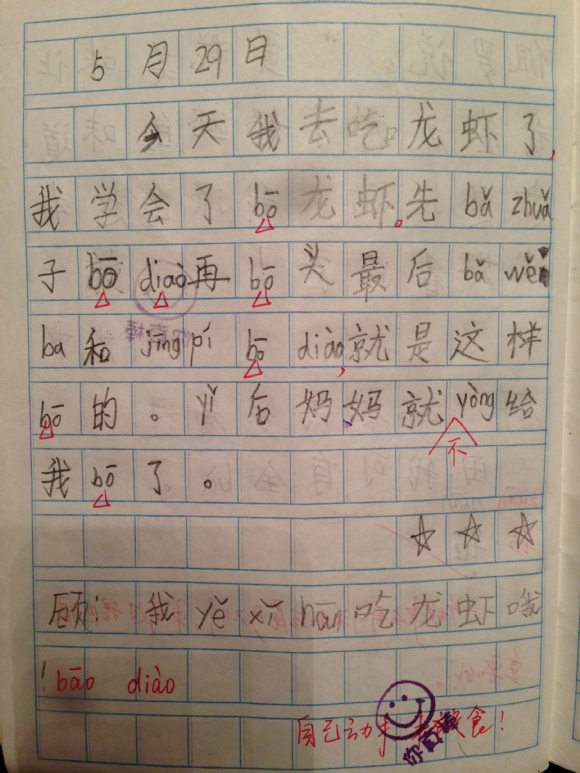 5月29日
今天我去吃龙虾了,
我学会了bō龙虾。先bǎ zhuǎ
子bō diào再bō头最后bǎ wěi
ba和jīng pí bō diào,就是这样
bō的。yǐ后妈妈就不yòng给
我bō了。
☆☆☆
顾:我yě xǐ huān吃龙虾哦
!bāo diào
自己动手 食!